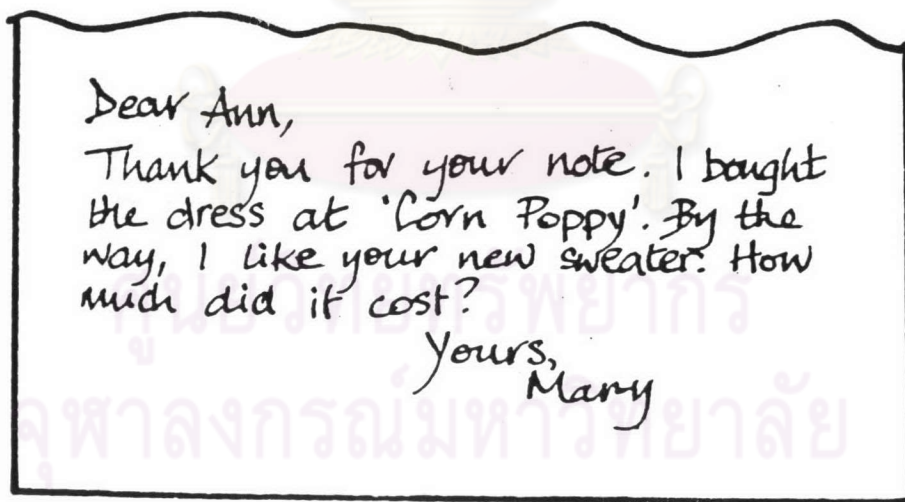 Dear Ann,
Thank you for your note. I bought
the dress at 'Corn Poppy'. By the
way, I like your new sweater. How
much did it cost?
Yours,
Mary
ศูนย์วิทยทรัพยากร
จุฬาลงกรณ์มหาวิทยาลัย